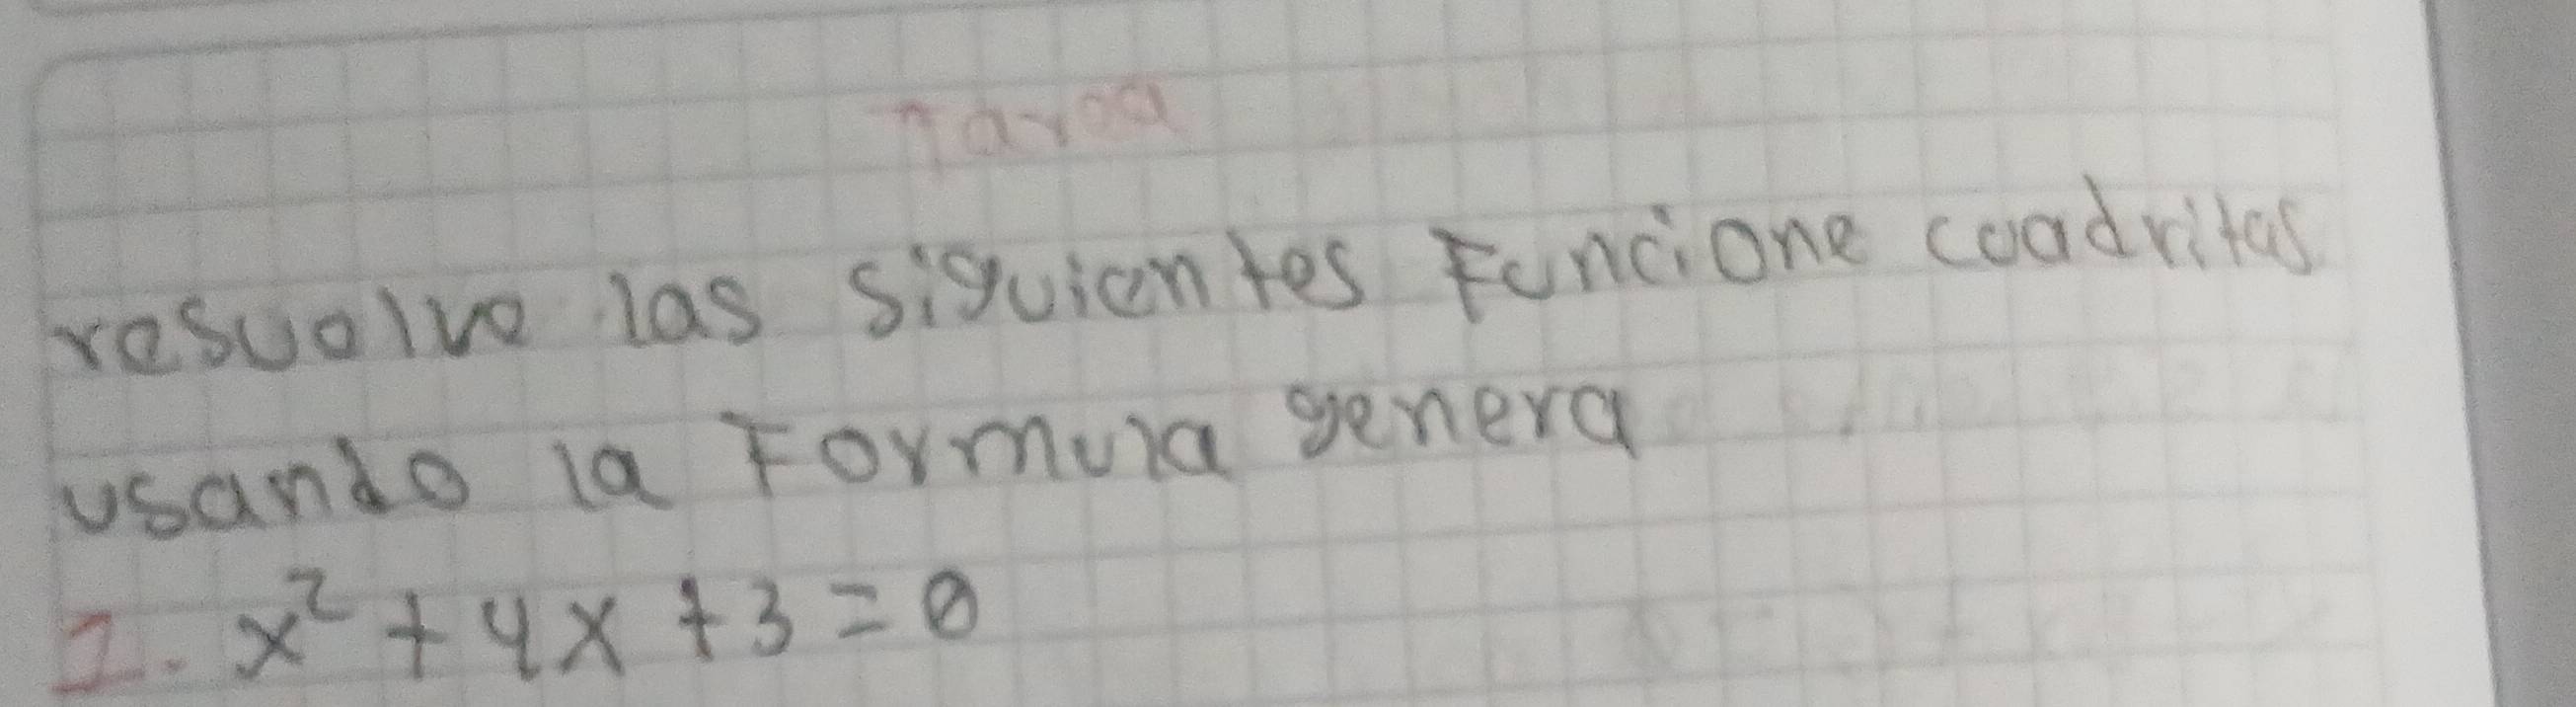 Tarea
resuelve las siguientes Funcione cuadritas
usando la Formula genera
1. x² + 4x + 3 = 0